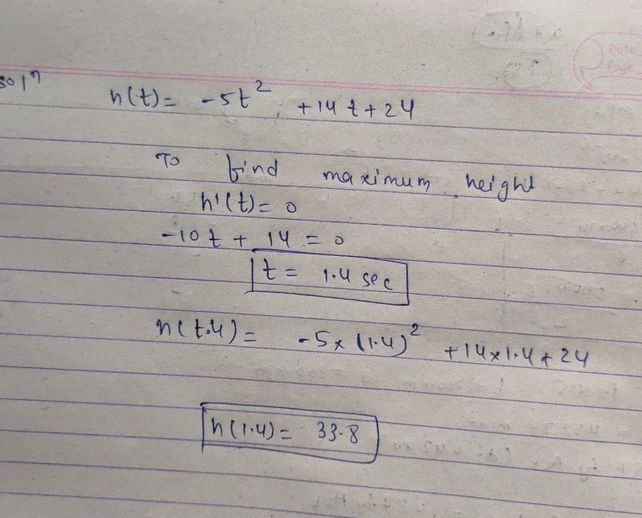 Date
Page
Solⁿ
h(t) = -5t² + 14t + 24
To find maximum height
h'(t) = 0
-10t + 14 = 0
t = 1.4 sec
h(1.4) = -5 × (1.4)² + 14×1.4 + 24
h(1.4) = 33.8